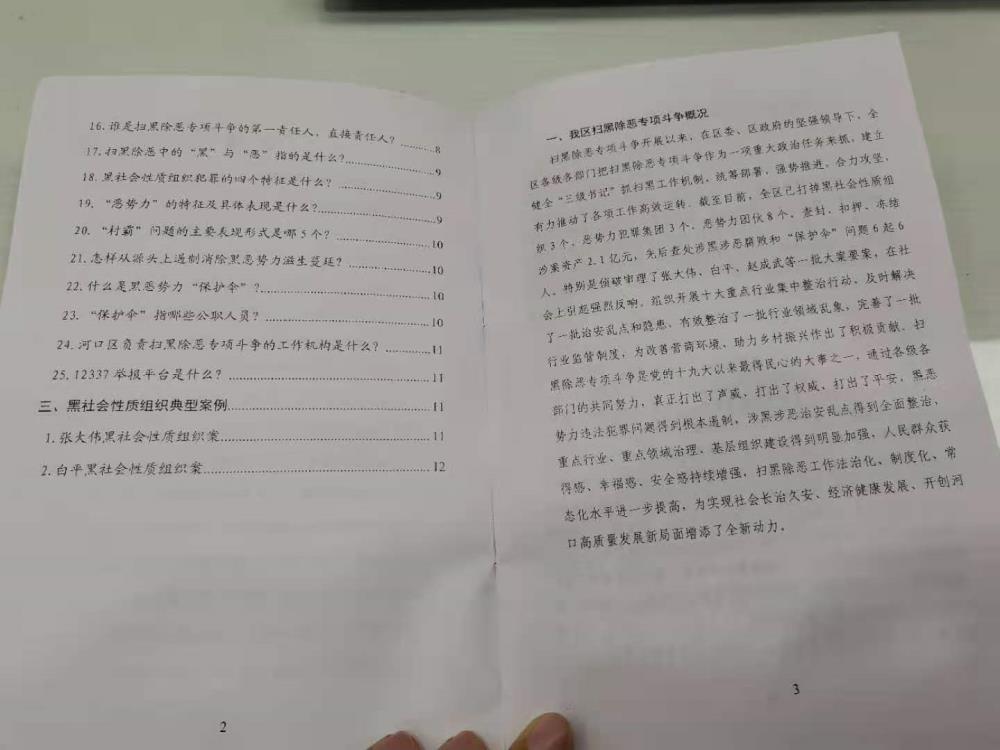 16.谁是扫黑除恶专项斗争的第一责任人、直接责任人?.........8
17.扫黑除恶中的“黑”与“恶”指的是什么?......................9
18.黑社会性质组织犯罪的四个特征是什么?........................9
19.“恶势力”的特征及具体表现是什么?............................9
20.“村霸”问题的主要表现形式是哪5个?........................10
21.怎样从源头上遏制消除黑恶势力滋生蔓延?...................10
22.什么是黑恶势力“保护伞”?........................................10
23.“保护伞”指哪些公职人员?.......................................10
24.河口区负责扫黑除恶专项斗争的工作机构是什么?............11
25.12337举报平台是什么?..............................................11
三、黑社会性质组织典型案例..............................................11
1.张大伟黑社会性质组织案...............................................11
2.白平黑社会性质组织案..................................................12
2
一、我区扫黑除恶专项斗争概况
扫黑除恶专项斗争开展以来,在区委、区政府的坚强领导下,全
区各级各部门把扫黑除恶专项斗争作为一项重大政治任务来抓,建立
健全“三级书记”抓扫黑工作机制,统筹部署,强势推进,合力攻坚,
有力推动了各项工作高效运转。截至目前,全区已打掉黑社会性质组
织3个、恶势力犯罪集团3个、恶势力团伙8个,查封、扣押、冻结
涉案资产2.1亿元,先后查处涉黑涉恶腐败和“保护伞”问题6起6
人。特别是侦破审理了张大伟、白平、赵成武等一批大案要案,在社
会上引起强烈反响。组织开展十大重点行业集中整治行动,及时解决
了一批治安乱点和隐患,有效整治了一批行业领域乱象,完善了一批
行业监管制度,为改善营商环境、助力乡村振兴作出了积极贡献。扫
黑除恶专项斗争是党的十九大以来最得民心的大事之一,通过各级各
部门的共同努力,真正打出了声威、打出了权威、打出了平安,黑恶
势力违法犯罪问题得到根本遏制,涉黑涉恶治安乱点得到全面整治,
重点行业、重点领域治理、基层组织建设得到明显加强,人民群众获
得感、幸福感、安全感持续增强,扫黑除恶工作法治化、制度化、常
态化水平进一步提高,为实现社会长治久安、经济健康发展、开创河
口高质量发展新局面增添了全新动力。
3